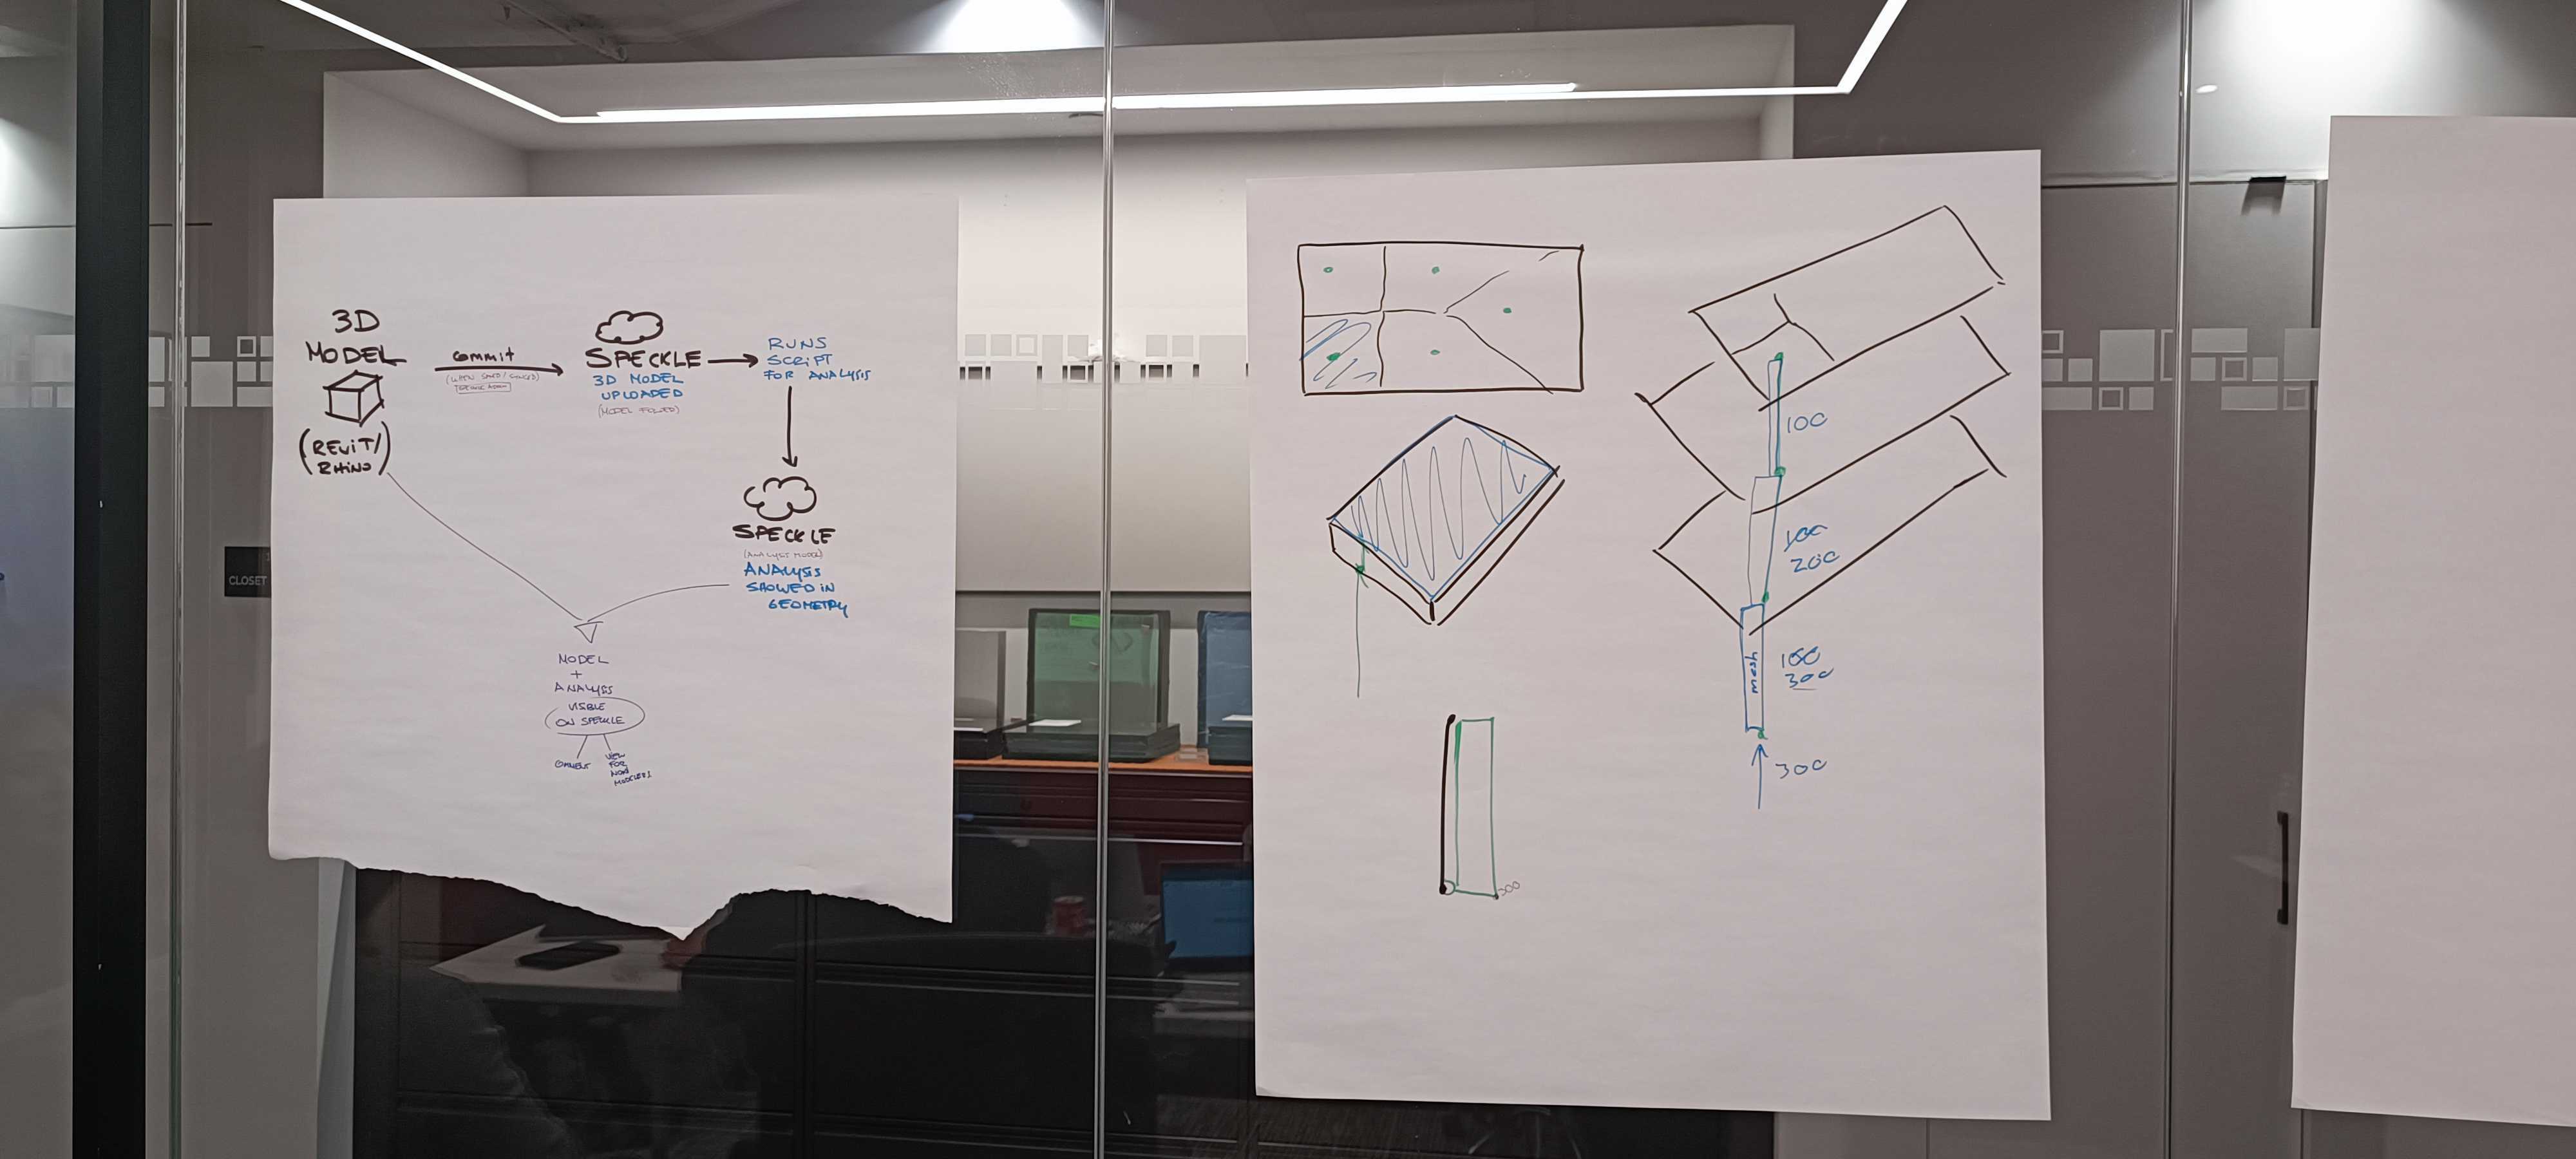 3D
MODEL
(REVIT/
RHINO)
COMMIT
SPECKLE
3D MODEL
UPLOADED
RUNS
SCRIPT
FOR ANALYSIS
SPECKLE
(ANALYSIS MODEL)
ANALYSIS
SHOWED IN
GEOMETRY
MODEL
+
ANALYSIS
VISIBLE
ON SPECKLE
COMMENT
VIEW
FOR
NON
MODELERS
CLOSET
100
100
200
100
300
MESH
300
300